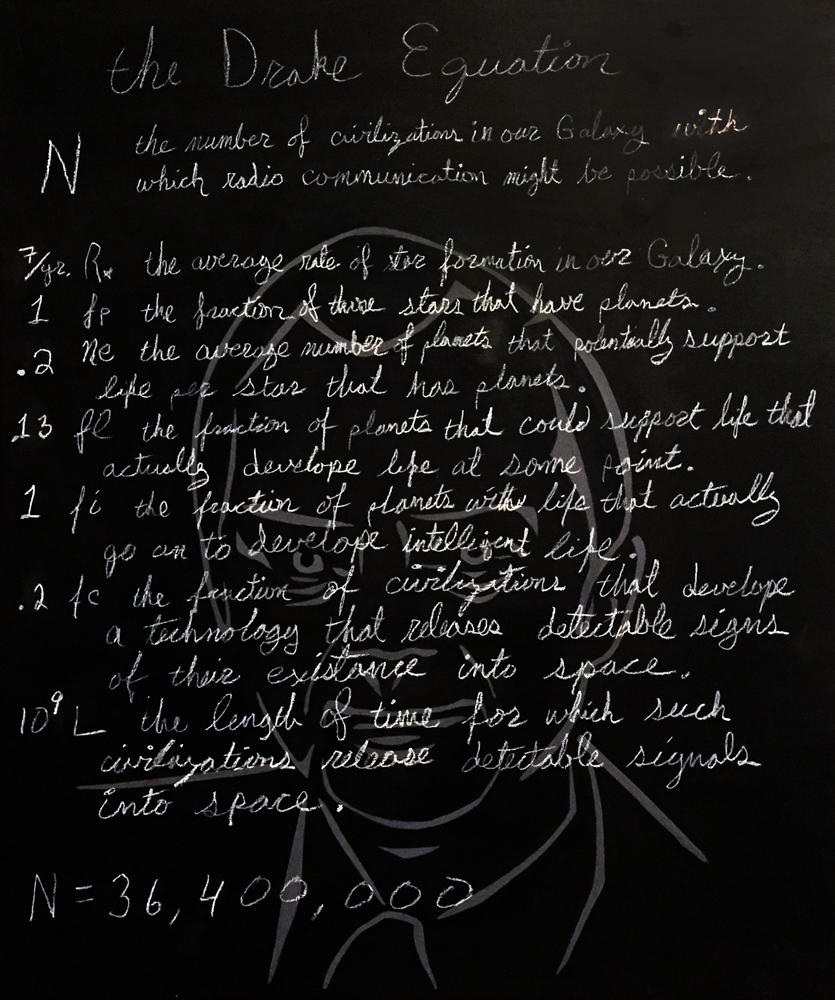 the Drake Equation
N the number of civilizations in our Galaxy with
which radio communication might be possible.
7/yr. R* the average rate of star formation in our Galaxy.
1 fp the fraction of those stars that have planets.
.2 Ne the average number of planets that potentially support
life per star that has planets.
.13 fl the fraction of planets that could support life that
actually develope life at some point.
1 fi the fraction of planets with life that actually
go on to develope intelligent life.
.2 fc the fraction of civilizations that develope
a technology that releases detectable signs
of their existance into space.
10⁹ L the length of time for which such
civilizations release detectable signals
into space.
N = 36,400,000